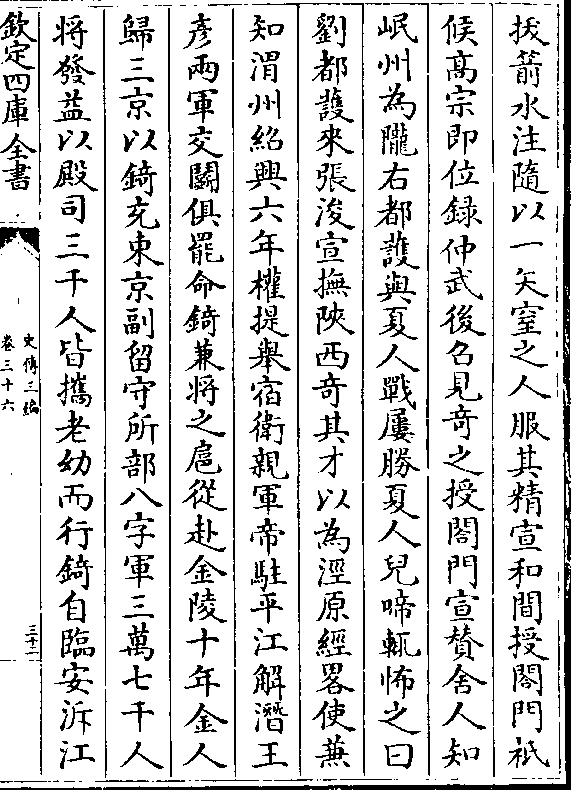 拔箭水注隨以一矢窒之人服其精宣和間授閤門祗
候髙宗即位録仲武後召見奇之授閤門宣賛舍人知
岷州為隴右都䕶與夏人戰屢勝夏人兒啼輒怖之曰
劉都䕶來張浚宣撫陜西奇其才以為涇原經畧使兼
知渭州紹興六年權提舉宿衛親軍帝駐平江解潛王
彦兩軍交鬭俱罷命錡兼將之扈從赴金陵十年金人
歸三京以錡充東京副留守所部八字軍三萬七千人
将發益以殿司三千人皆攜老幼而行錡自臨安泝江
欽定四庫全書
史傳三編
卷三十六
三十二